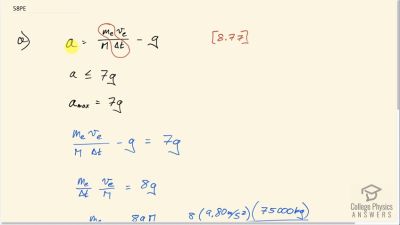 58PE
a) a = m_e v_e / M Δt − g [8.77]
a ≤ 7g
a_max = 7g
m_e v_e / M Δt − g = 7g
m_e / Δt v_e / M = 8g
m_e 8gM 8(9.80 m/s²)(75000kg)
College Physics
ANSWERS